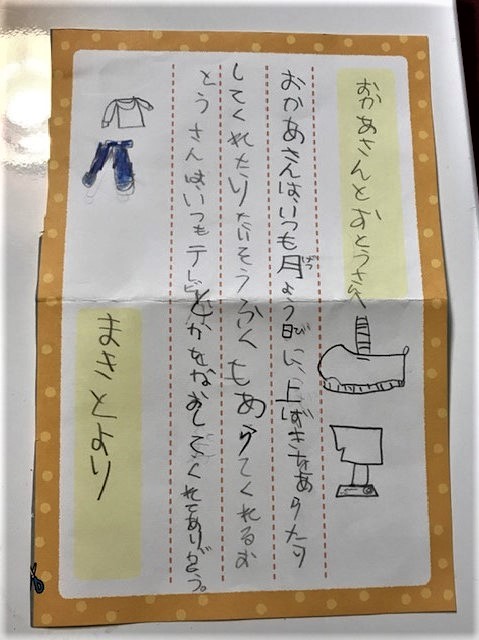 おかあさんとおとうさんへ
おかあさんはいつも月よう日に、上ばきをあらったり
してくれたりたいそうふくもあらてくれるお
とうさんはいつもテレビとかをなおしてくれてありがどう。
まさとより